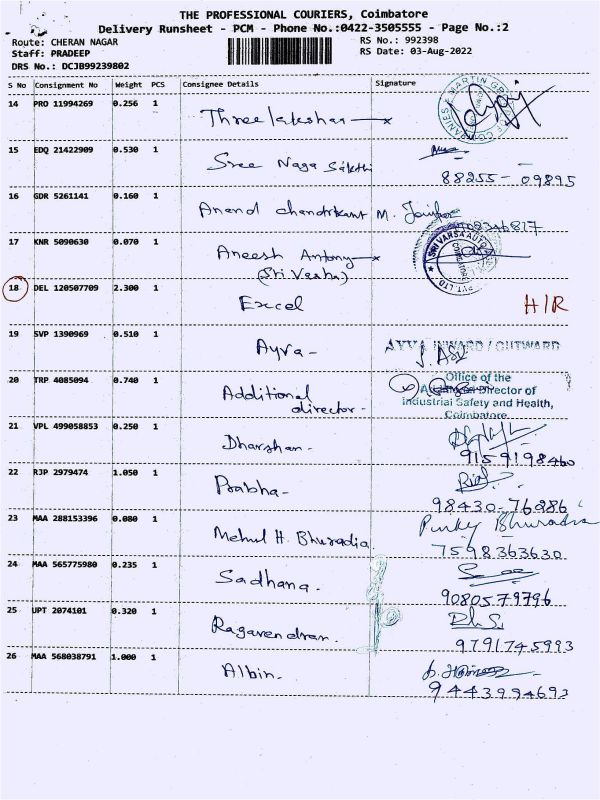 THE PROFESSIONAL COURIERS, Coimbatore
Delivery Runsheet - PCM - Phone No.:0422-3505555 - Page No.:2
Route: CHERAN NAGAR RS No.: 992398
Staff: PRADEEP RS Date: 03-Aug-2022
DRS No.: DCJB99239802
S No Consignment No Weight PCS Consignee Details Signature
14 PRO 11994269 0.256 1
15 EDQ 21422909 0.530 1 Sree Naga Sakthi
88255-09895
16 GDR 5261141 0.160 1 Anand Chandrkant M.
17 KNR 5090630 0.070 1 Aneesh Antony
(Sri Vesha)
SRI VARSA AUTO
18 DEL 120507709 2.300 1 Excel H/R
19 SVP 1390969 0.510 1 Ayva - AYVA INWARD / OUTWARD
20 TRP 4085094 0.740 1 Additional
director -
Office of the
Director of
Industrial Safety and Health,
Coimbatore
21 VPL 499058853 0.250 1 Dharshan.
9159198460
22 RJP 2979474 1.050 1 Prabha -
98430-76286
23 MAA 288153396 0.080 1 Mehul H. Bhuradia Pinky Bhuradia
7598363630
24 MAA 565775980 0.235 1 Sadhana.
9080579796
25 UPT 2074101 0.320 1 Ragavendran.
9791745993
26 MAA 568038791 1.000 1 Albin.
9443994693